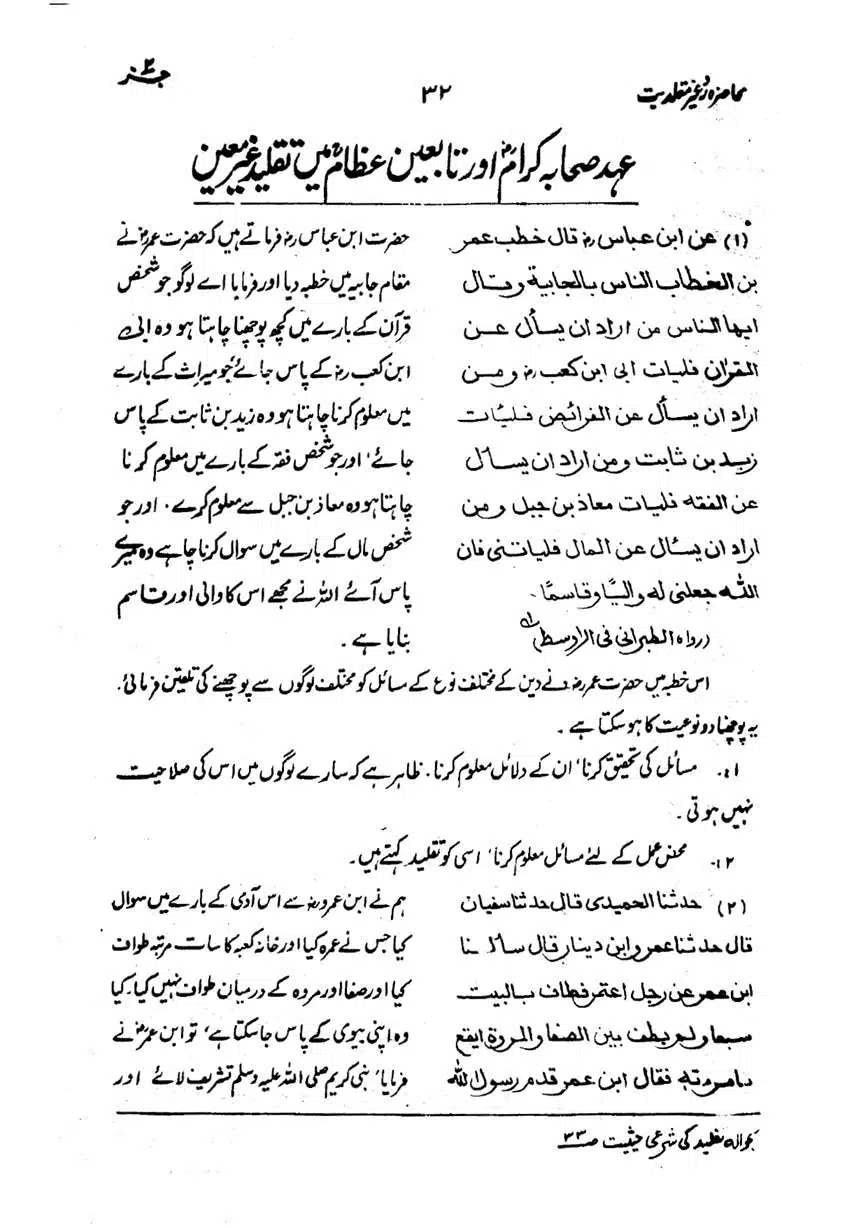 محاضرہ ردِ غیر مقلدیت
۳۲
جزء ۲
عہد صحابہ کرامؓ اور تابعین عظامؒ میں تقلید غیر معین
(۱) عن ابن عباس رض قال خطب عمر
بن الخطاب الناس بالجابية وقال
ايها الناس من اراد ان يسأل عن
القرآن فليات ابى ابن كعب رض ومن
اراد ان يسأل عن الفرائض فليأت
زيد بن ثابت ومن اراد ان يسأل
عن الفقه فليات معاذ بن جبل ومن
اراد ان يسأل عن المال فلياتنى فان
الله جعلنى له واليًّا وقاسمًا۔
(رواه الطبرانى فى الاوسط) لہ
حضرت ابن عباس رض فرماتے ہیں کہ حضرت عمرؓ نے
مقام جابیہ میں خطبہ دیا اور فرمایا اے لوگو جو شخص
قرآن کے بارے میں کچھ پوچھنا چاہتا ہو وہ ابی
ابن کعب رض کے پاس جائے، جو میراث کے بارے
میں معلوم کرنا چاہتا ہو وہ زید بن ثابت کے پاس
جائے، اور جو شخص فقہ کے بارے میں معلوم کرنا
چاہتا ہو وہ معاذ بن جبل سے معلوم کرے۔ اور جو
شخص مال کے بارے میں سوال کرنا چاہے وہ میرے
پاس آئے اللہ نے مجھے اس کا والی اور قاسم
بنایا ہے۔
اس خطبہ میں حضرت عمر رض نے دین کے مختلف نوع کے مسائل کو مختلف لوگوں سے پوچھنے کی تلقین فرمائی۔
یہ پوچھنا دو نوعیت کا ہو سکتا ہے۔
۱:۔ مسائل کی تحقیق کرنا، ان کے دلائل معلوم کرنا۔ ظاہر ہے کہ سارے لوگوں میں اس کی صلاحیت
نہیں ہوتی۔
۲:۔ محض عمل کے لئے مسائل معلوم کرنا، اسی کو تقلید کہتے ہیں۔
(۲) حدثنا الحميدى قال حدثنا سفيان
قال حدثنا عمرو ابن دينار قال سألنا
ابن عمر عن رجل اعتمر فطاف بالبيت
سبعا ولم يطف بين الصفا والمروة ايقع
بامرءته فقال ابن عمر قدم رسول الله
ہم نے ابن عمر رض سے اس آدمی کے بارے میں سوال
کیا جس نے عمرہ کیا اور خانہ کعبہ کا سات مرتبہ طواف
کیا اور صفا اور مروہ کے درمیان طواف نہیں کیا۔ کیا
وہ اپنی بیوی کے پاس جا سکتا ہے، تو ابن عمرؓ نے
فرمایا، نبی کریم صلی اللہ علیہ وسلم تشریف لائے اور
بحوالہ تقلید کی شرعی حیثیت ص۳۳